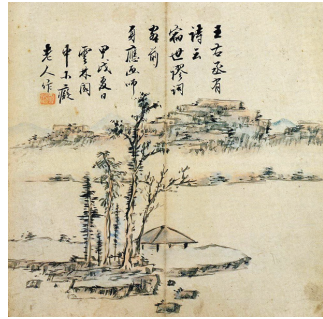 王右丞有
詩云
宿世謬詞
客前
身應画師
甲戌夏日
雲林園
中
老人作